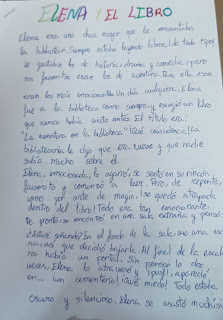 ELENA Y EL LIBRO
Elena era una chica mayor que le encantaba
la biblioteca. Siempre estaba leyendo libros, de todo tipo,
le gustaban los de historia, drama y comedia, pero
sus favoritos eran los de aventura. Para ella, esos
eran los más emocionantes. Un día cualquiera, Elena
fue a la biblioteca como siempre y escogió un libro
que nunca había visto antes. El título era:
"La aventura en la biblioteca". ¡Qué coincidencia! La
bibliotecaria le dijo que era nuevo y que nadie
sabía mucho sobre él.
Elena, emocionada, lo agarró, se sentó en su rincón
favorito y comenzó a leer. Pero, de repente,
como por arte de magia, ¡se quedó atrapada
dentro del libro! Todo era tan emocionante.
De pronto se encontró en una sala extraña y pensó:
¿Estaré soñando? En el fondo de la sala, vio una esca
lera, así que decidió bajarla. Al final de la escale
ra había un portal. Sin pensarlo dos
veces, Elena lo atravesó y ¡puf!, apareció
en... un cementerio! ¡Qué miedo! Todo estaba
oscuro y silencioso, Elena se asustó muchís